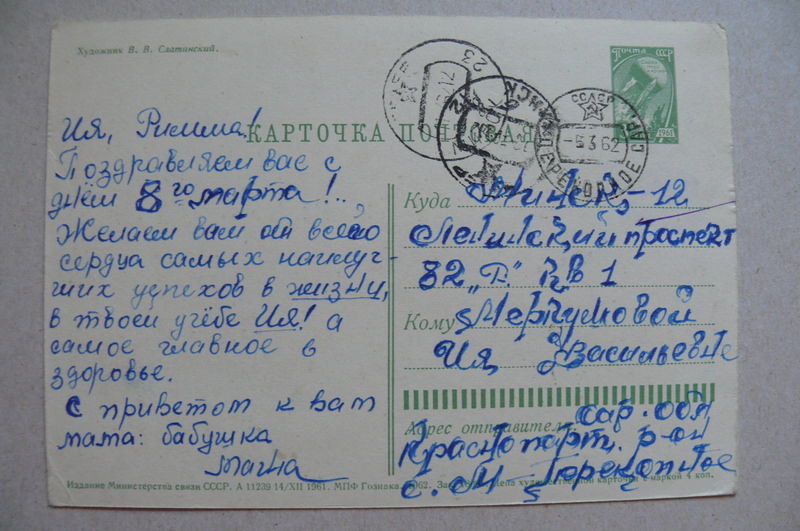 Художник В. В. Слатинский.
ПОЧТА СССР
1961
КАРТОЧКА ПОЧТОВАЯ
СССР
-5362
Ия, Римма!
Поздравляем вас с
днём 8го марта!..
Желаем вам от всего
сердца самых наилуч-
ших успехов в жизни,
в твоей учёбе Ия! а
самое главное в
здоровье.
С приветом к вам
мама: бабушка
Куда Минск-12
Ленинский проспект
82 "Г" кв 1
Кому Меркуловой
Ия Васильевне
Адрес отправителя:
сар. обл
Краснопарт. р-он
с.
Издание Министерства связи СССР. А 11239 14/XII 1961. МПФ Гознака. 1962. Зак. художественной карточки с маркой 4 коп.